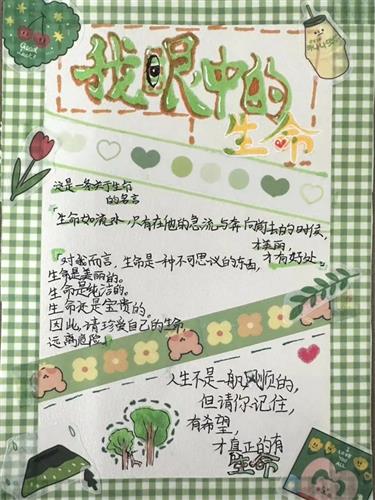 我眼中的
生命
这是一条关于生命
的名言
“生命如流水，只有在他的急流与奔向前去的时候，
才美丽，
才有好处”
对我而言，生命是一种不可思议的东西，
生命是美丽的。
生命是纯洁的。
生命还是宝贵的。
因此，请珍爱自己的生命，
远离危险。
人生不是一帆风顺的，
但请你记住，
有希望，
才真正的有
生命
I LOVE
YOU